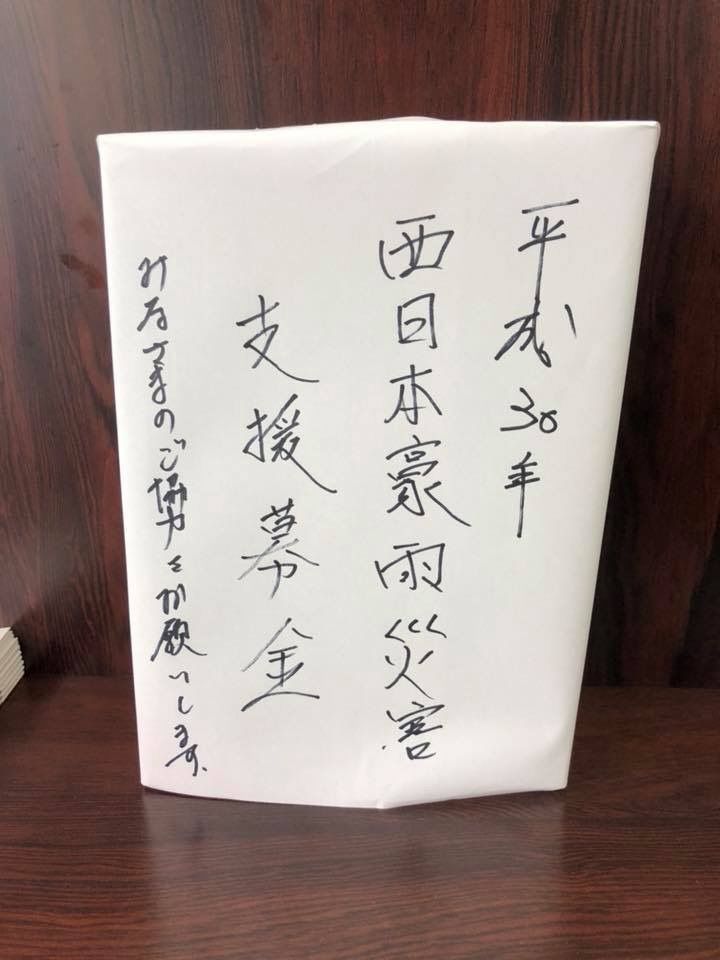 平成30年
西日本豪雨災害
支援募金
みなさまのご協力をお願いします。